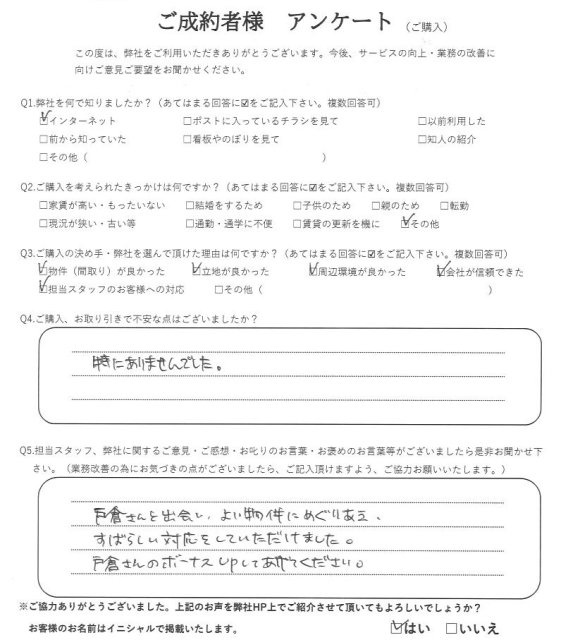 ご成約者様　アンケート（ご購入）
この度は、弊社をご利用いただきありがとうございます。今後、サービスの向上・業務の改善に
向けご意見ご要望をお聞かせください。
Q1.弊社を何で知りましたか？（あてはまる回答に☑をご記入下さい。複数回答可）
☑インターネット　□ポストに入っているチラシを見て　□以前利用した
□前から知っていた　□看板やのぼりを見て　□知人の紹介
□その他（　　　）
Q2.ご購入を考えられたきっかけは何ですか？（あてはまる回答に☑をご記入下さい。複数回答可）
□家賃が高い・もったいない　□結婚をするため　□子供のため　□親のため　□転勤
□現況が狭い・古い等　□通勤・通学に不便　□賃貸の更新を機に　☑その他
Q3.ご購入の決め手・弊社を選んで頂けた理由は何ですか？（あてはまる回答に☑をご記入下さい。複数回答可）
☑物件（間取り）が良かった　☑立地が良かった　☑周辺環境が良かった　☑会社が信頼できた
☑担当スタッフのお客様への対応　□その他（　　　）
Q4.ご購入、お取り引きで不安な点はございましたか？
特にありませんでした。
Q5.担当スタッフ、弊社に関するご意見・ご感想・お叱りのお言葉・お褒めのお言葉等がございましたら是非お聞かせ下
さい。（業務改善の為にお気づきの点がございましたら、ご記入頂けますよう、ご協力お願いいたします。）
戸倉さんと出会い、よい物件にめぐりあえ、
すばらしい対応をしていただけました。
戸倉さんのボーナスUPしてあげてください。
※ご協力ありがとうございました。上記のお声を弊社HP上でご紹介させて頂いてもよろしいでしょうか？
お客様のお名前はイニシャルで掲載いたします。　☑はい　□いいえ